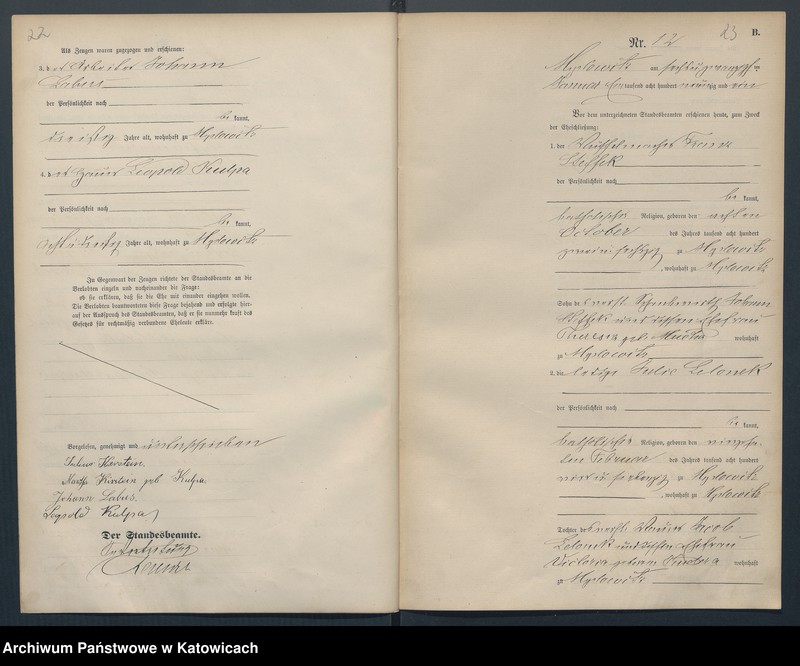 22
Als Zeugen waren zugezogen und erschienen:
3. der Arbeiter Johann
Labus
der Persönlichkeit nach
be kannt,
dreißig Jahre alt, wohnhaft zu Myslowitz
4. der Leopold Kulpa
der Persönlichkeit nach
be kannt,
Jahre alt, wohnhaft zu Myslowitz
In Gegenwart der Zeugen richtete der Standesbeamte an die
Verlobten einzeln und nacheinander die Frage:
ob sie erklären, daß sie die Ehe mit einander eingehen wollen.
Die Verlobten beantworteten diese Frage bejahend und erfolgte hier-
auf der Ausspruch des Standesbeamten, daß er sie nunmehr kraft des
Gesetzes für rechtmäßig verbundene Eheleute erkläre.
Vorgelesen, genehmigt und unterschrieben
Julius
geb Kulpa
Johann Labus
Leopold Kulpa
Der Standesbeamte.
23
B.
Nr. 12
Myslowitz am
Januar Eintausend acht hundert neunzig und ein
Vor dem unterzeichneten Standesbeamten erschienen heute, zum Zweck
der Eheschließung:
1. der Franz
Steffek
der Persönlichkeit nach
be kannt,
katholischer Religion, geboren den achten
October des Jahres tausend acht hundert
zu Myslowitz
, wohnhaft zu Myslowitz
Sohn des verst. Johann
Steffek und dessen Ehefrau
geb. wohnhaft
zu Myslowitz
2. die ledige Julie Lelonek
der Persönlichkeit nach
be kannt,
katholischer Religion, geboren den
Februar des Jahres tausend acht hundert
vier und sechzig zu Myslowitz
, wohnhaft zu Myslowitz
Tochter des verst. Jacob
Lelonek und dessen Ehefrau
Victoria geborene wohnhaft
zu Myslowitz
Archiwum Państwowe w Katowicach